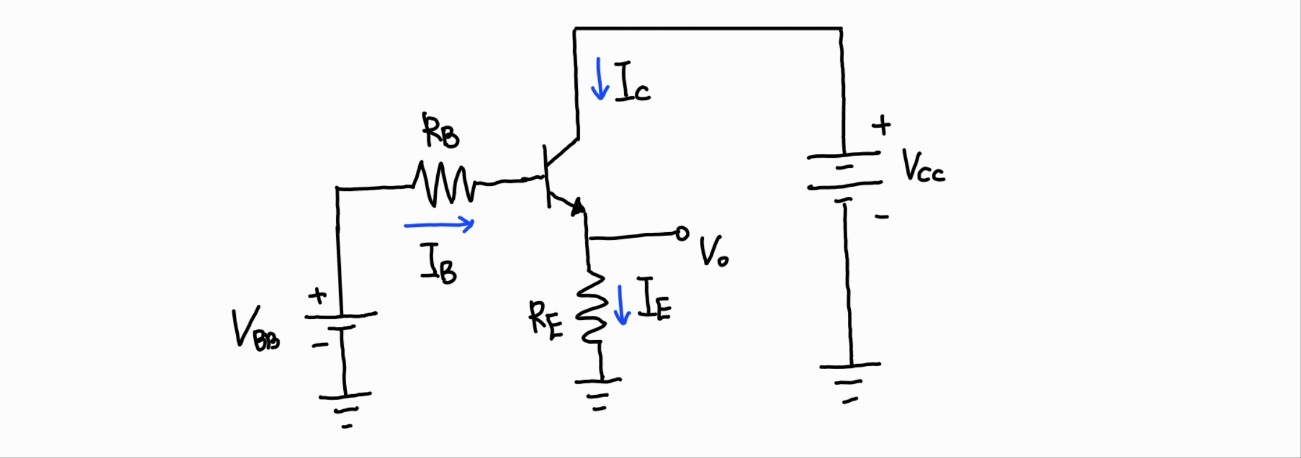 I_C
R_B
+
V_CC
-
I_B
V_o
+
V_BB
-
R_E
I_E